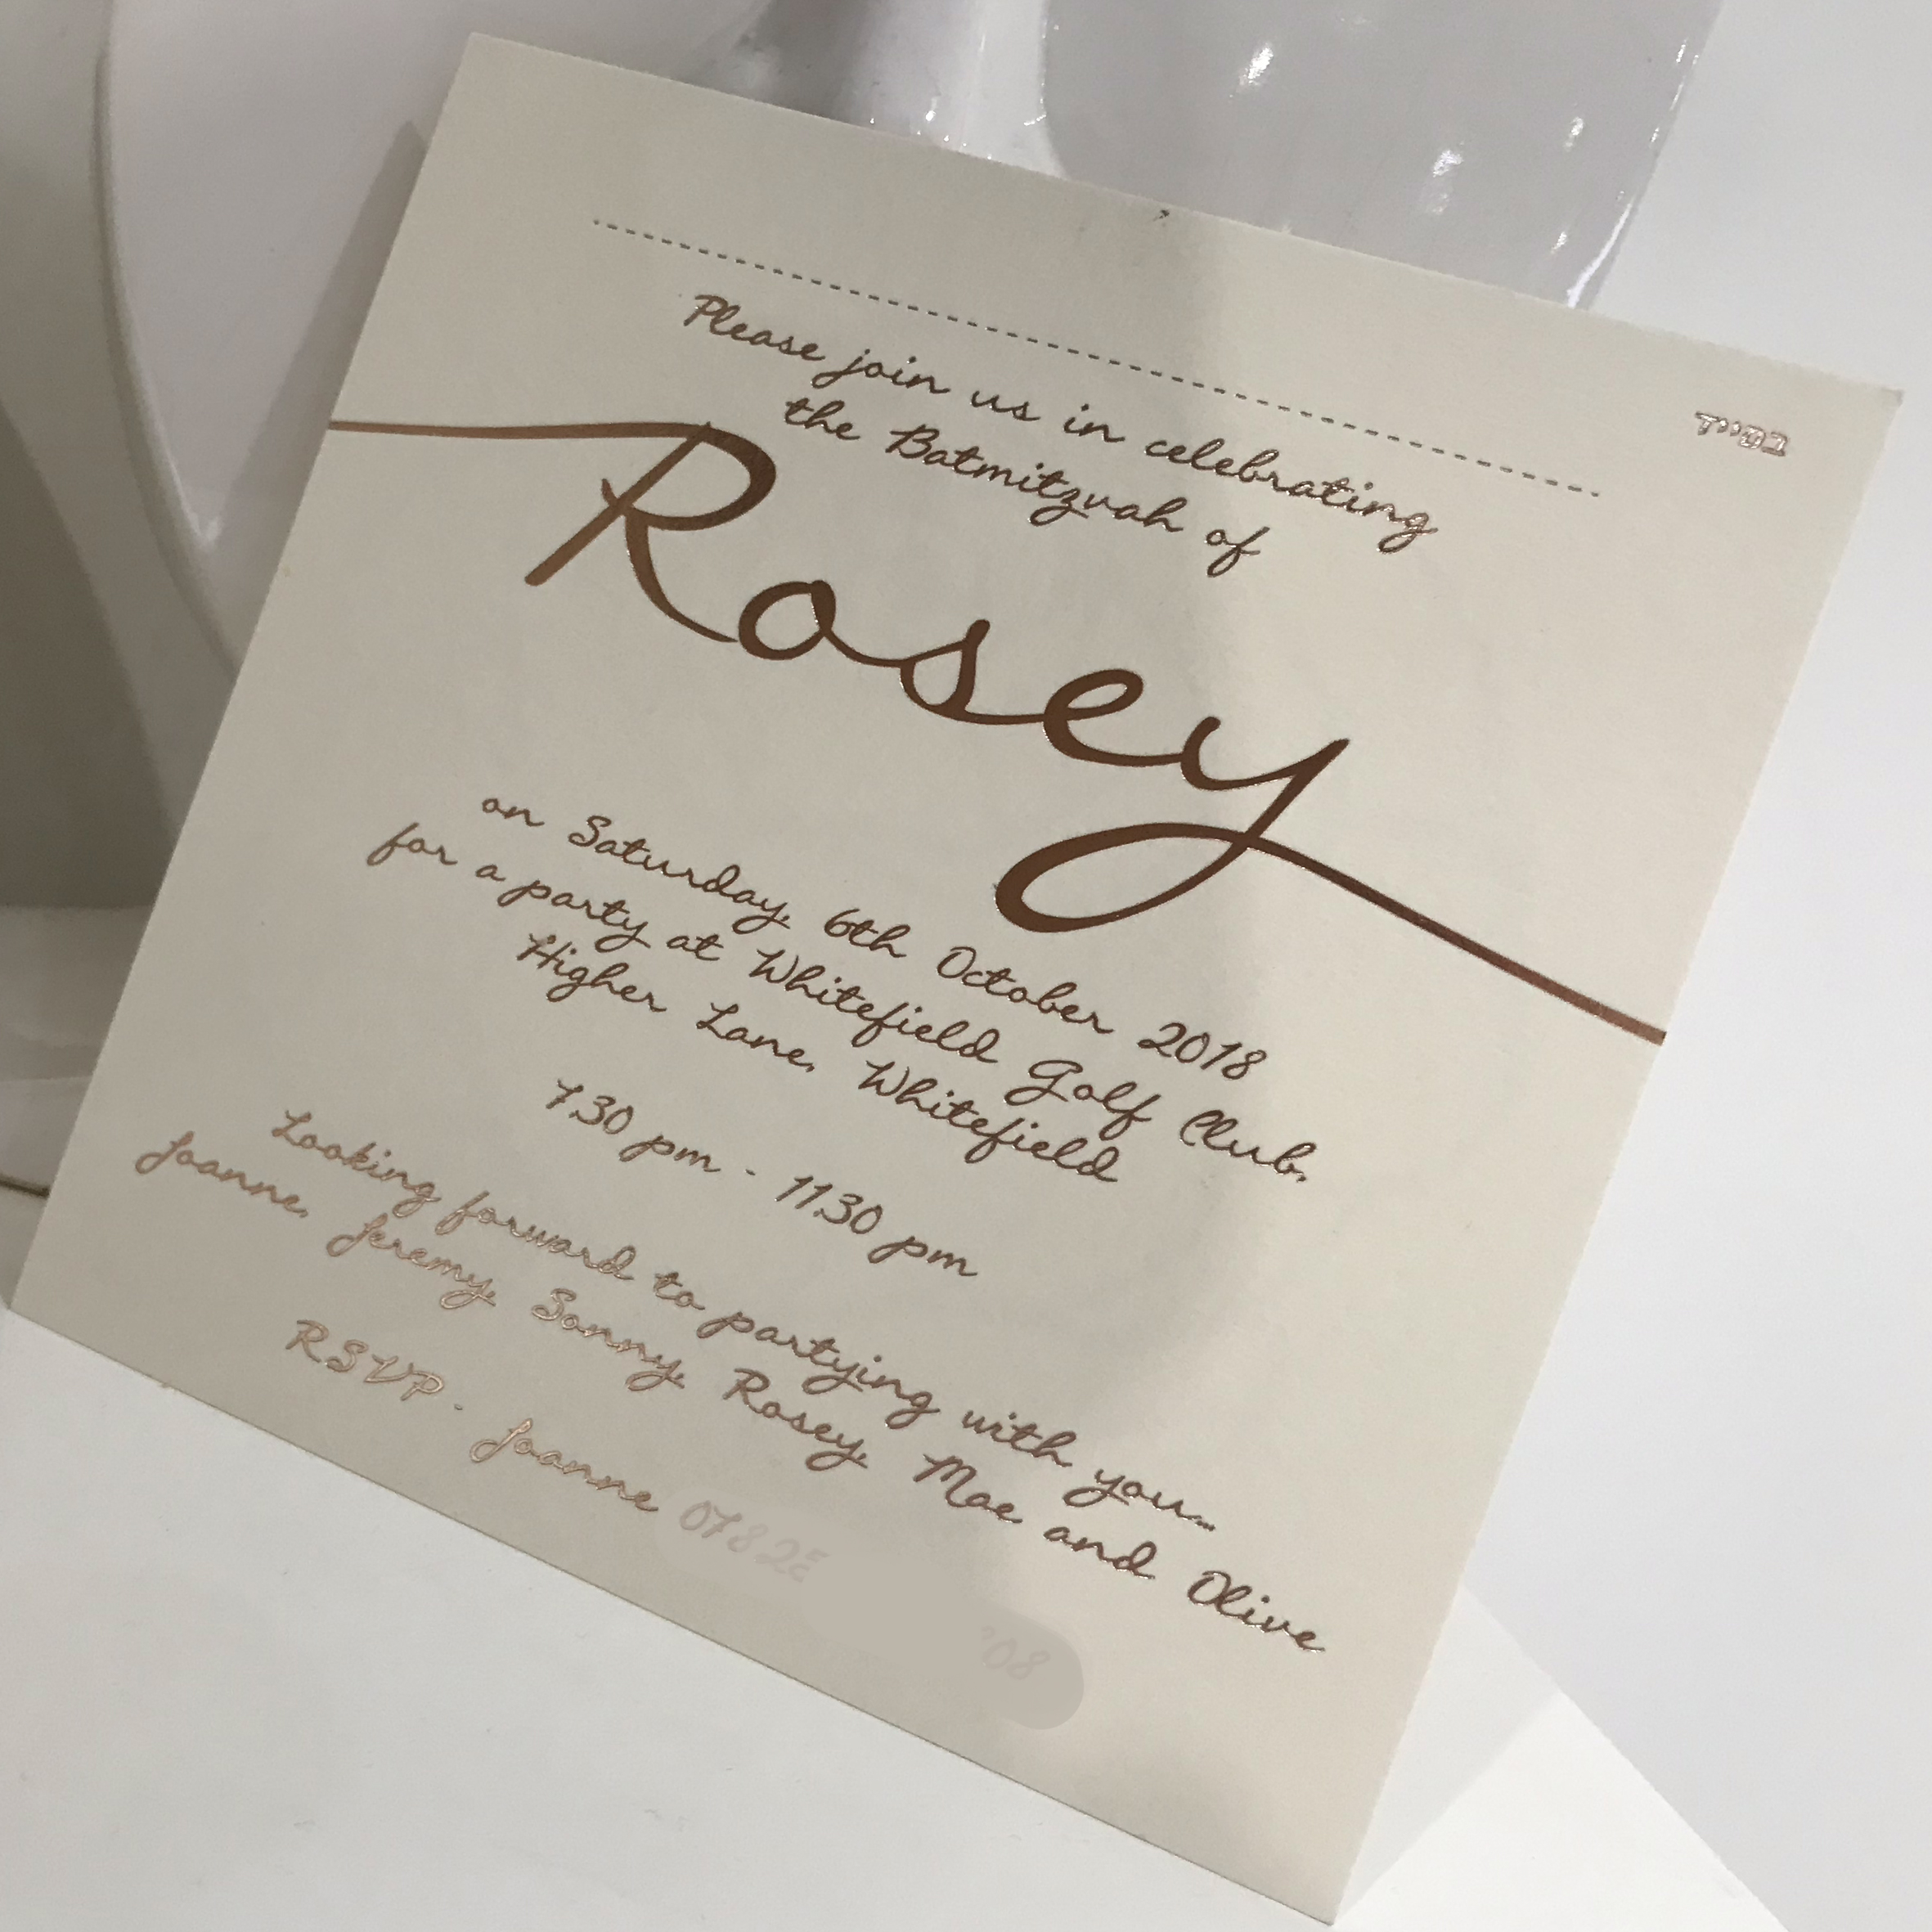 בסייד
Please join us in celebrating
the Batmitzvah of
Rosey
on Saturday, 6th October 2018
for a party at Whitefield Golf Club,
Higher Lane, Whitefield
7.30 pm - 11.30 pm
Looking forward to partying with you...
Joanne, Jeremy, Sonny, Rosey, Mae and Olive
RSVP - Joanne